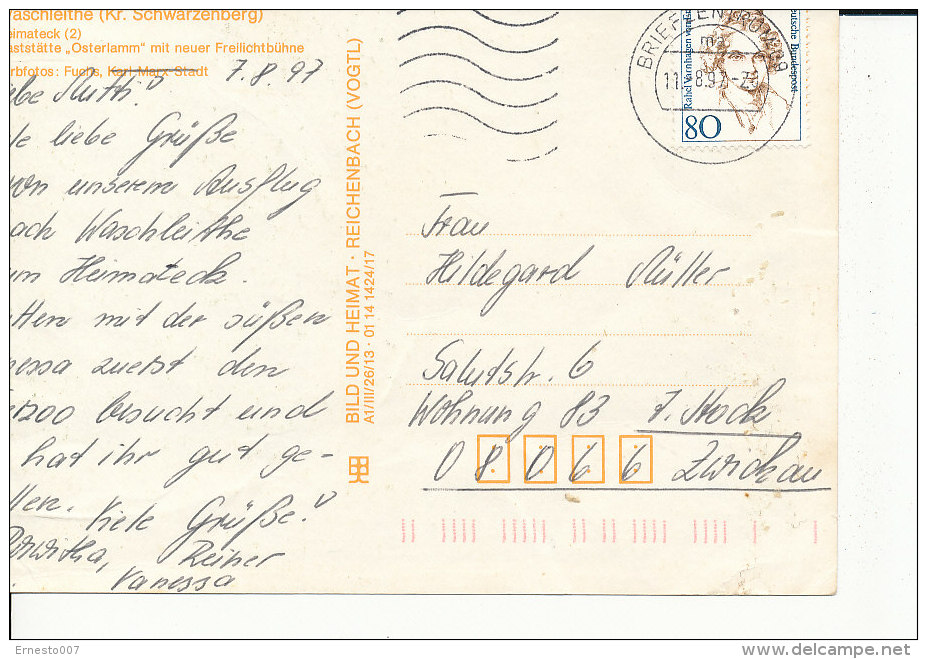 aschleithe (Kr. Schwarzenberg)
eimateck (2)
aststätte „Osterlamm" mit neuer Freilichtbühne
rbfotos: Fuchs, Karl-Marx-Stadt
7.8.97
ebe Ruth!
le liebe Grüße
von unserem Ausflug
ach Waschleithe
um Heimateck.
atten mit der süßen
nessa zuerst den
erzoo besucht und
hat ihr gut ge-
llen. Viele Grüße!
Reiner
Vanessa
BILD UND HEIMAT · REICHENBACH (VOGTL)
A1/III/26/13 · 01 14 1424/17
BRIEFZENTRUM 09
ma
Rahel Varnhagen von Ense
Deutsche Bundespost
80
Frau
Hildegard Müller
Salutstr. 6
Wohnung 83 7. Stock
08066 Zwickau
Ernesto007
delcampe.net